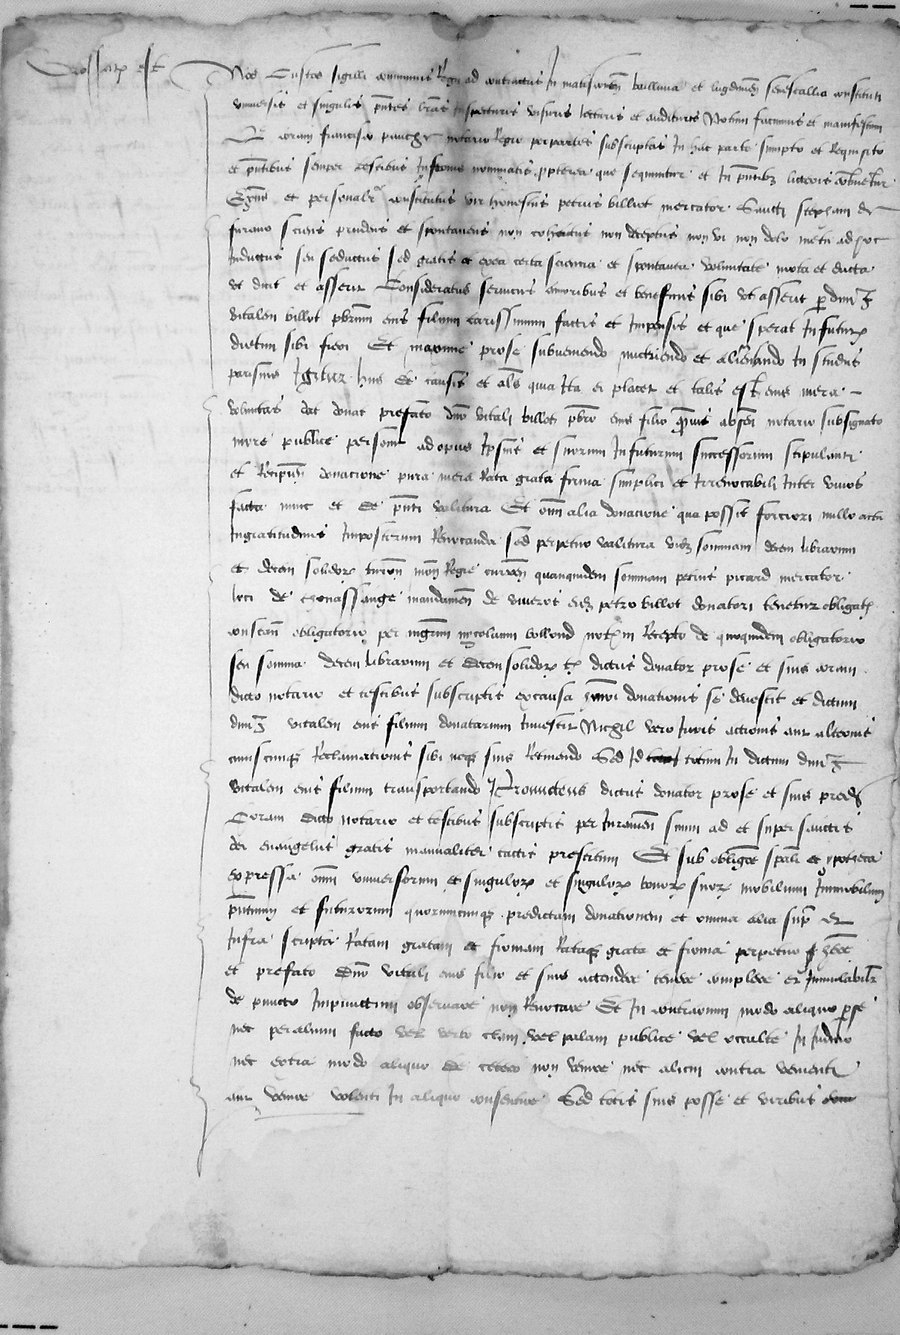 Grossat est
Nos Custos sigilli communis Regii ad contractus In matisconen bailliuia et lugdunen senescallia constituti
vniuersis et singulis pntes lras Inspecturis visuris lecturis et audituris Notum facimus et manifestum
Q coram francisco notario Regio per partes subscriptas In hac parte sumpto et Requisito
et pntibus semper testibus Inferius nominatis propterea que sequuntur et In pntibus litteris
et personalr constitutus vir honestus petrus billiot mercator Sancti stephani de
furano sciens prudens et spontaneus non cohactus non deceptus non vi non dolo metu ad hoc
Inductus seu seductus sed gratis et eius certa sciencia et spontanea voluntate mota et ducta
vt dicit et asserit Consideratis seruiciis amoribus et beneficiis sibi vt asserit p dnm
vitalem billot pbrum eius filium carissimum factis et Impensis et que sperat In futurum
dictum sibi fieri Et maxime pro se subueniendo nutriendo et alimentando In studiis
parisiens Igitur hiis de causis et als quia Ita ei placet et talis est eius mera
voluntas dat donat prefato dno vitali billot pbro eius filio absen notario subsignato
more publice persone ad opus Ipsius et suorum In futurum successorum stipulanti
et Recipien donacione pura mera Rata grata firma simplici et Irreuocabili Inter viuos
facta nunc et de pnti valitura Et omi alia donacione qua possit forciori nullo actu
Ingratitudinis Imposterum Reuocanda sed perpetuo valitura videz sommam decem librarum
et decem solidor turon mon Regie curren quamquidem sommam petrus picard mercator
loci de chonassange mandamen de viueros eidem petro billot donatori tenetur obligato
constan obligatorio per mgrm nycolaum vollond notm Recepto de quoquidem obligatorio
seu somma decem librarum et decem solidor t dictus donator pro se et suis coram
dicto notario et testibus subscriptis ex causa hmoi donationis se deuestit et dictum
dnm vitalem eius filium donatarium Inuestit Nichil vero Juris actionis aut alterius
cuiuscumque Reclamationis sibi neque suis Retinendo Sed Id totum In dictum dnm
vitalem eius filium transportando Promictens dictus donator pro se et suis pred
Coram dicto notario et testibus subscriptis per Juramen suum ad et super sancti
dei euangelia gratis manualiter tactis prestitum Et sub obligae spali et ypotheca
expressa omi vniuersorum et singulor et singulor bonor suor mobilium Immobilium
pntium et futurorum quorumcumque predictam donationem et omnia alia supra et
Infra scripta Ratam gratam et firmam Rataque grata et firma perpetuo here
et prefato dno vitali eius filio et suis actendere tenere complere et Inuiolabilr
de puncto In punctum obseruare non Reuocare Et In contrarium modo aliquo p se
nec per alium facto vel verbo clam vel palam publice vel occulte In Judicio
nec extra modo aliquo de cetero non venire nec alicui contra venienti
aut venire volenti In aliquo consentire Sed totis suis posse et viribus